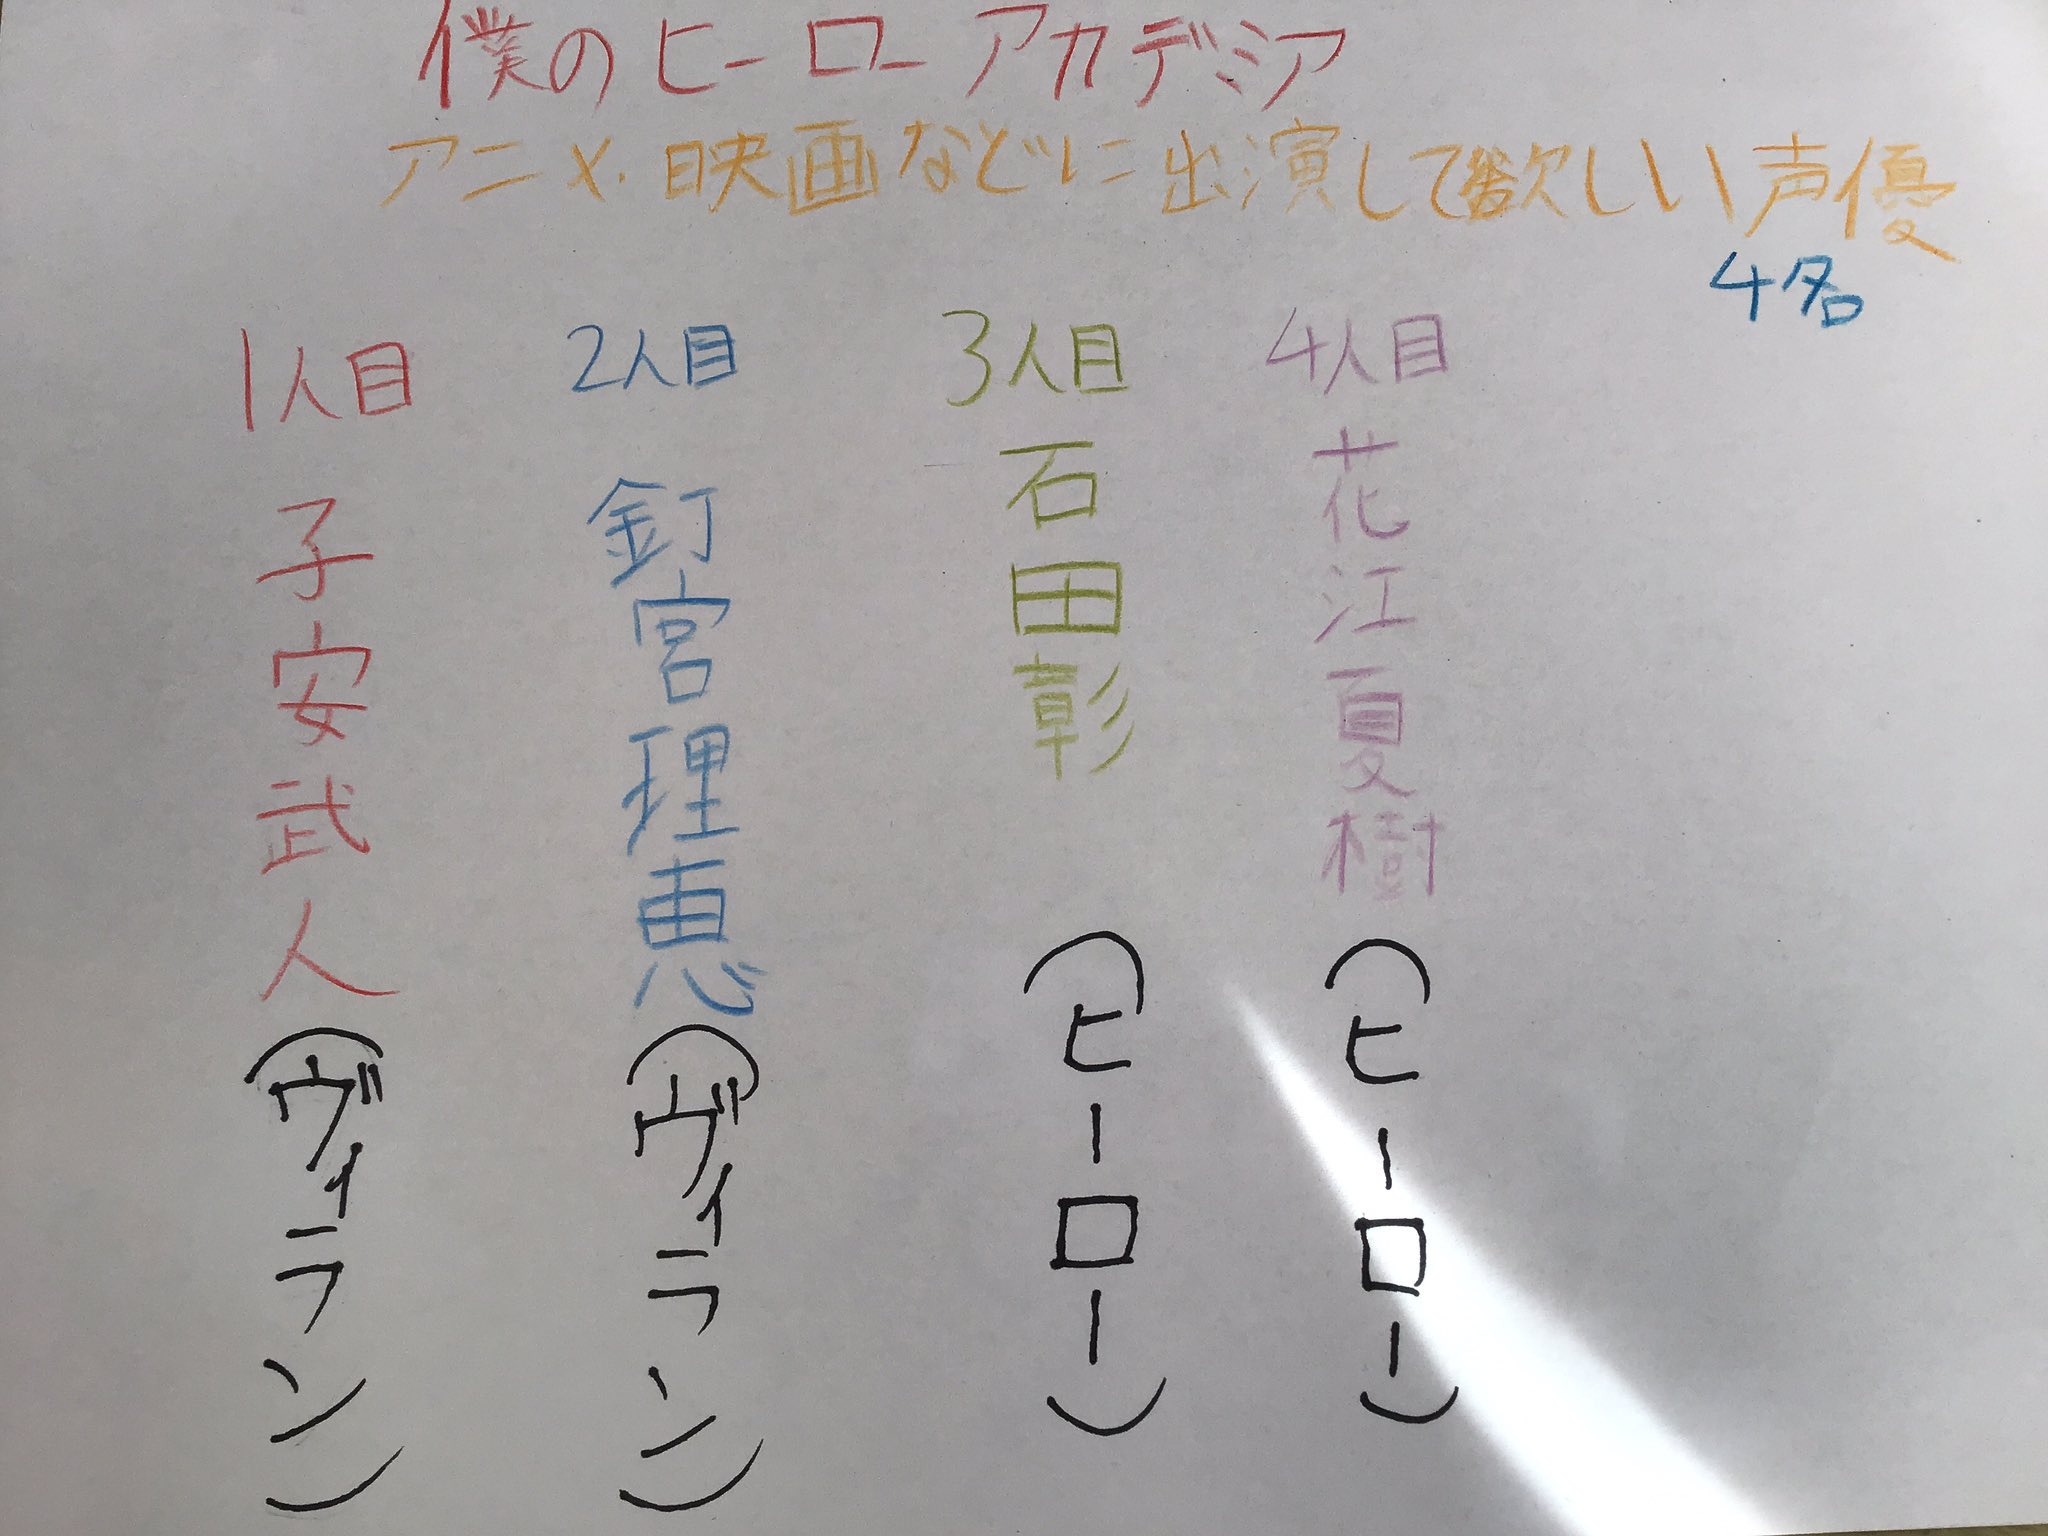 僕のヒーローアカデミア
アニメ・映画などに出演して欲しい声優
4名
1人目
子安武人
(ヴィラン)
2人目
釘宮理恵
(ヴィラン)
3人目
石田彰
(ヒーロー)
4人目
花江夏樹
(ヒーロー)